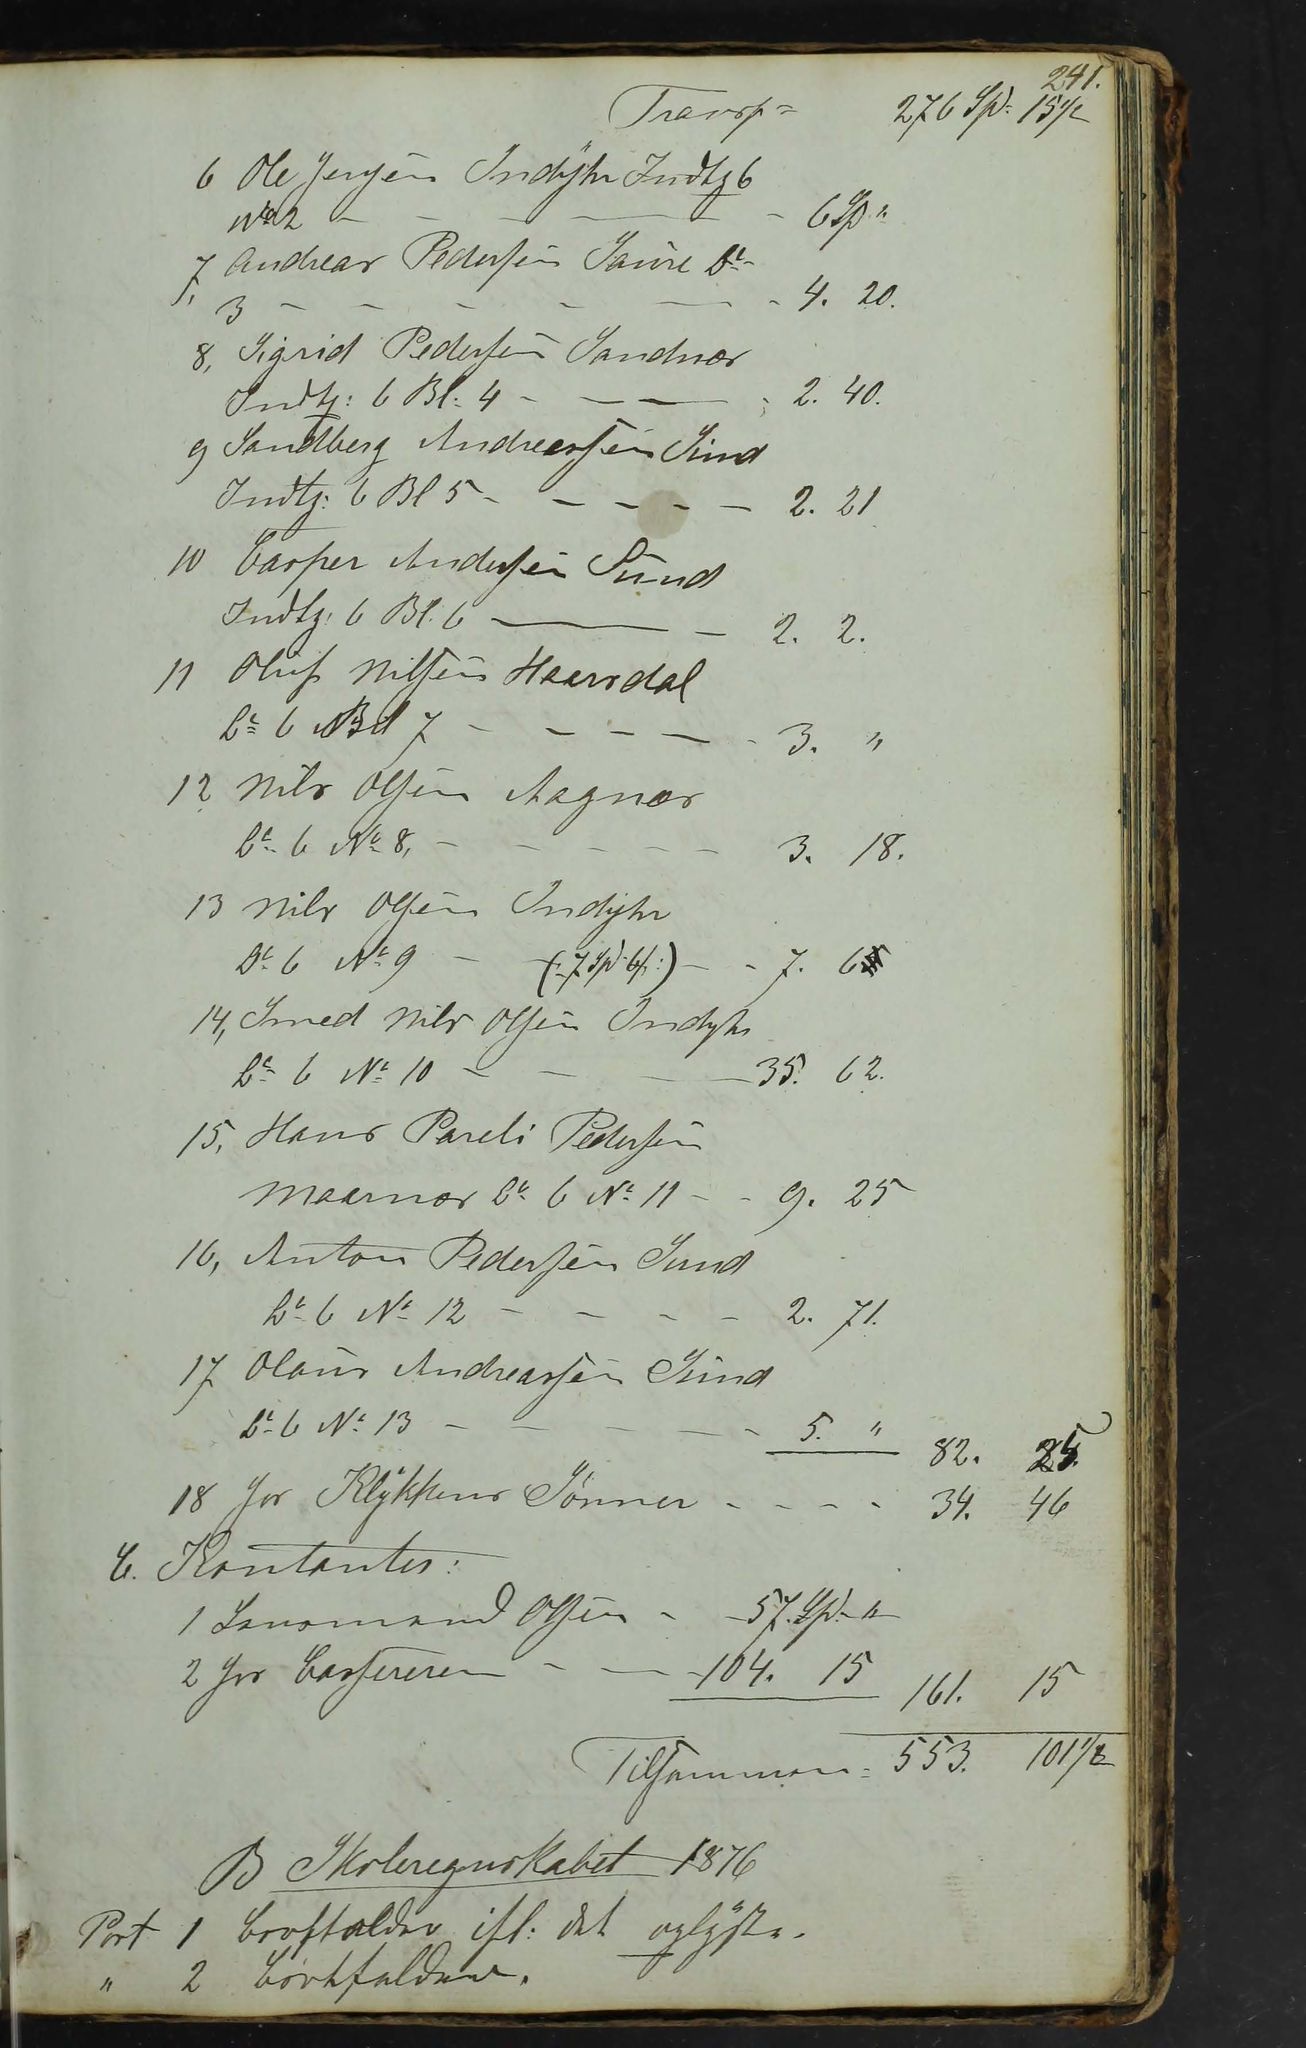 241.
Transp= 276 Spd: 15 1/2
6 Ole Jensen Indyhr Indtg 6
No 2 - - - - - 6 Spd "
7, Andreas Pedersen Saure Do
3 - - - - - 4. 20.
8, Sigrid Pedersen Sandnær
Indtg: 6 Bl: 4 - - - - 2. 40.
9 Sandberg Andreassen Sund
Indtg: 6 Bl 5 - - - - - 2. 21
10 Casper Andersen Sund
Indtg: 6 Bl. 6 - - 2. 2.
11 Oluf Nilsen Haarsdal
Do 6 Bl 7 - - - - - 3. "
12 Nils Olsen Aagnær
Do 6 No 8, - - - - - 3. 18.
13 Nils Olsen Indyhr
Do 6 No 9 - (: 7 Spd 6 s :) - - 7. 6
14, Smed Nils Olsen Indyhr
Do 6 No 10 - - - 35. 62.
15, Hans Pareli Pedersen
Maarnær Do 6 No 11 - - 9. 25
16, Anton Pedersen Sund
Do 6 No 12 - - - - 2. 71.
17 Olaus Andreassen Sund
Do 6 No 13 - - - - - 5. " 82. 25.
18 hos Klykkens Sønner - - - - 34. 46
C. Kontanter:
1 Lensmand Olsen - - 57. Spd - "
2 hos Cassereren - - - 104. 15 161. 15
Tilsammen = 553. 101 1/2
B Skoleregnskabet 1876
Post 1 bortfalder ifl: det oplyste.
" 2 bortfalder.